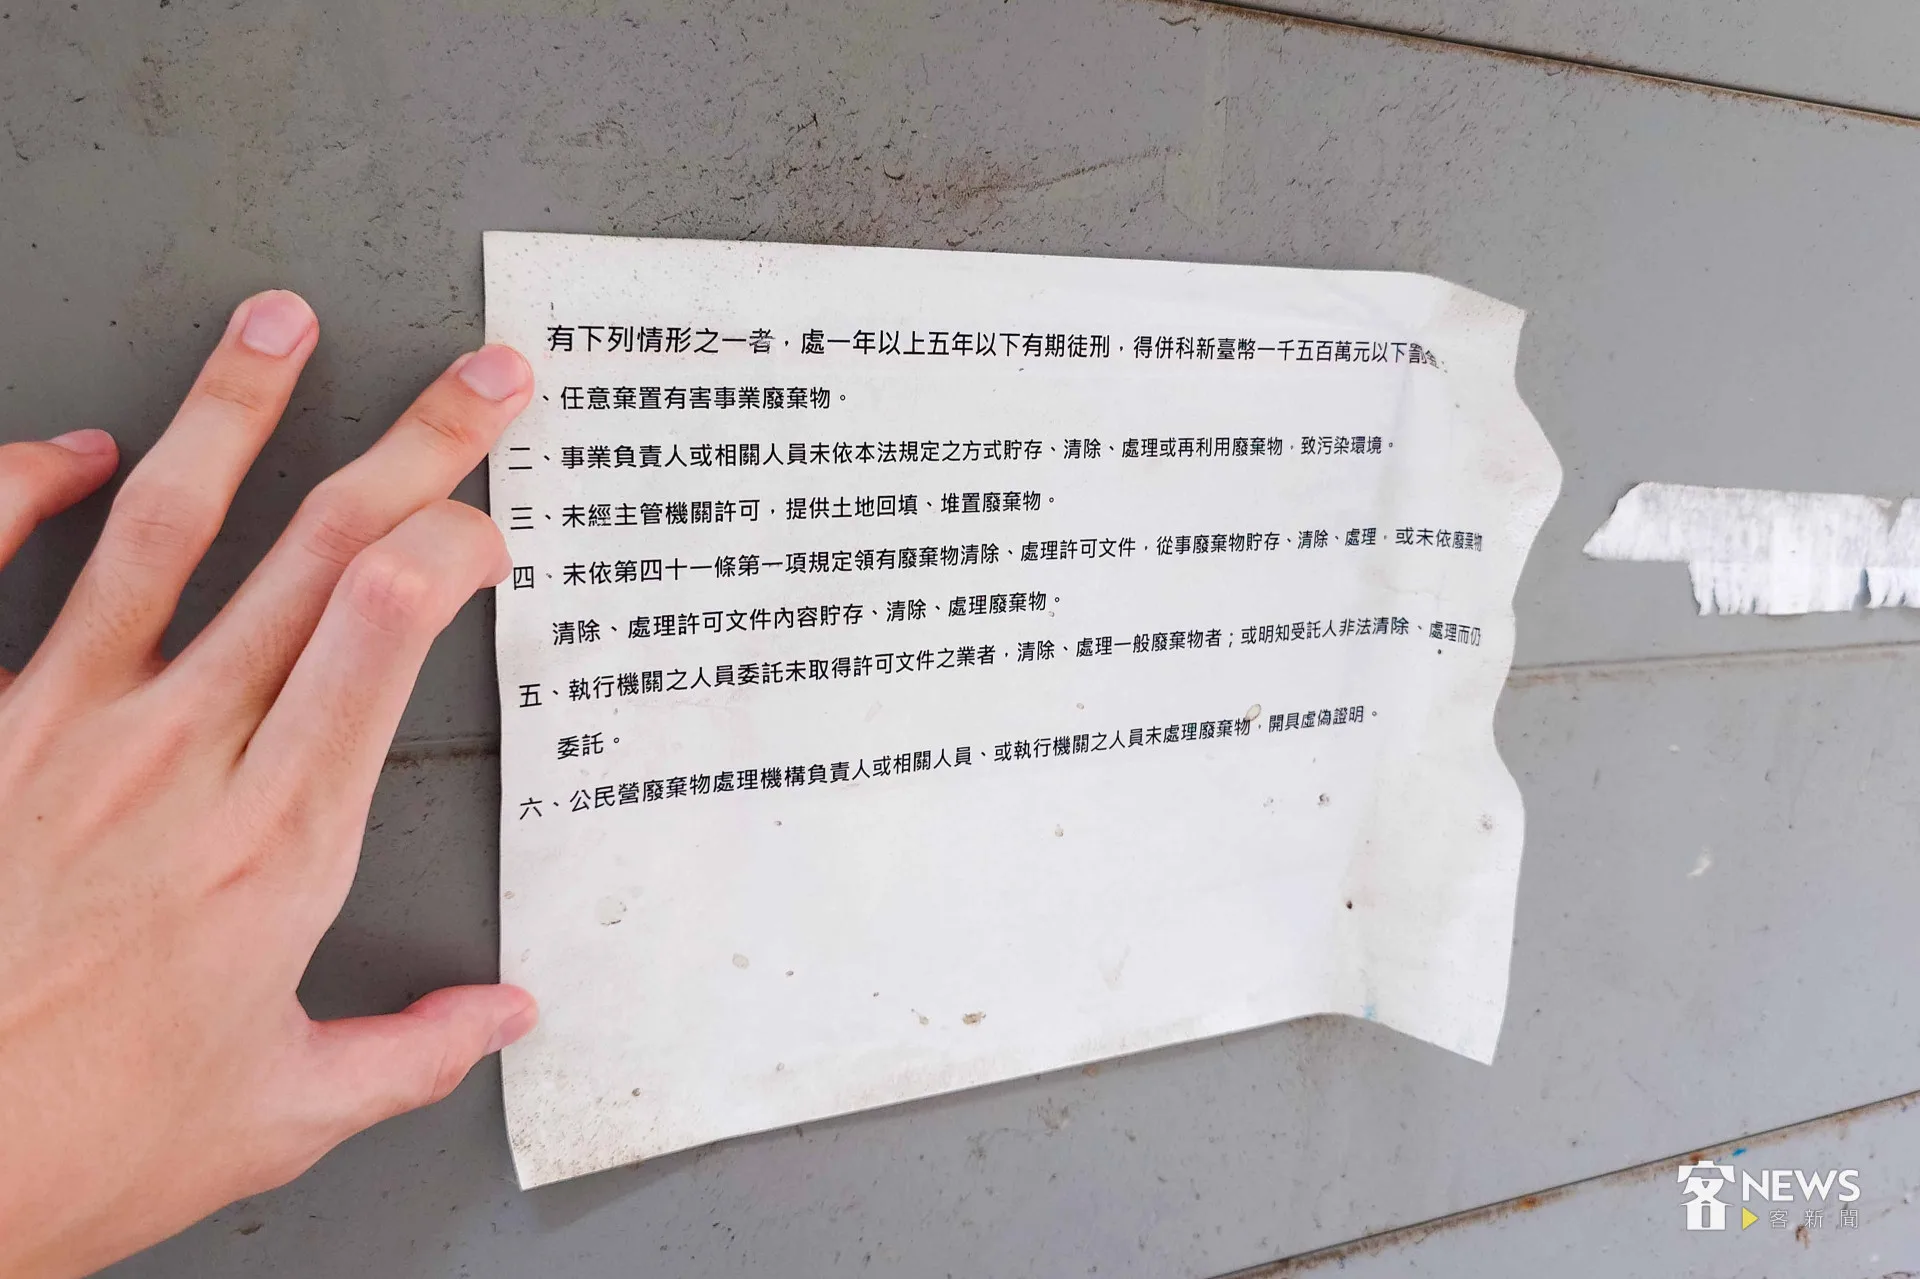 有下列情形之一者，處一年以上五年以下有期徒刑，得併科新臺幣一千五百萬元以下罰金
、任意棄置有害事業廢棄物。
二、事業負責人或相關人員未依本法規定之方式貯存、清除、處理或再利用廢棄物，致污染環境。
三、未經主管機關許可，提供土地回填、堆置廢棄物。
四、未依第四十一條第一項規定領有廢棄物清除、處理許可文件，從事廢棄物貯存、清除、處理，或未依廢棄物
清除、處理許可文件內容貯存、清除、處理廢棄物。
五、執行機關之人員委託未取得許可文件之業者，清除、處理一般廢棄物者；或明知受託人非法清除、處理而仍
委託。
六、公民營廢棄物處理機構負責人或相關人員、或執行機關之人員未處理廢棄物，開具虛偽證明。
客NEWS
客新聞